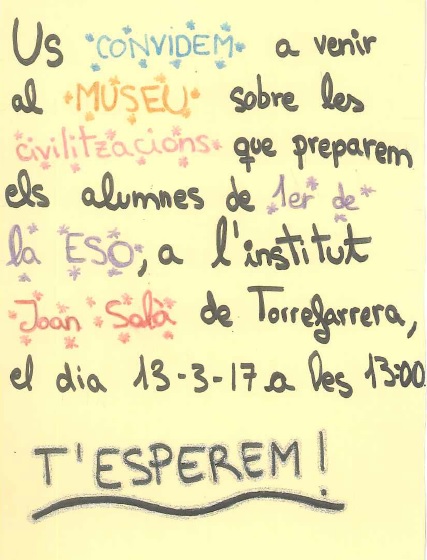 Us CONVIDEM a venir
al MUSEU sobre les
civilitzacions que preparem
els alumnes de 1er de
la ESO, a l'institut
Joan Solà de Torrefarrera,
el dia 13-3-17 a les 13:00
T'ESPEREM!